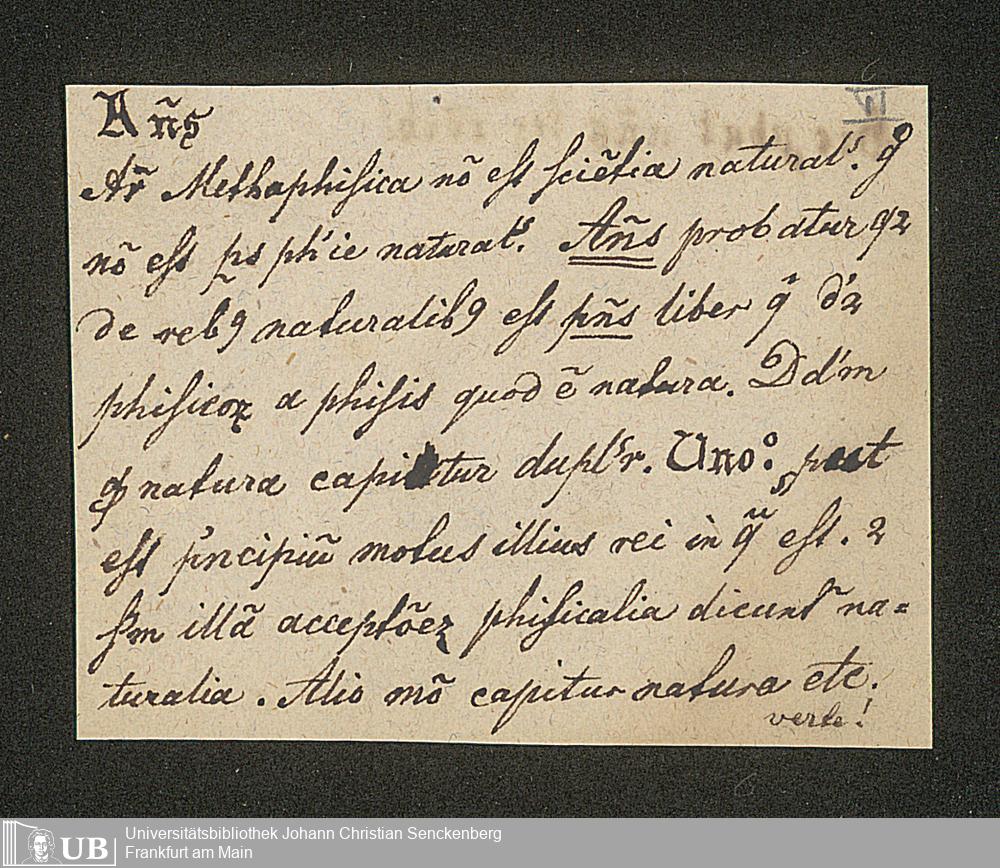 IV
Añs
Ar̄ Methaphisica nō est sciētia natural̕s. g̊
nō est ps ph'ie natural̕s. Añs probatur qz
de rebꝰ naturalibꝰ est pñs liber q̄ d'r
phisicoꝝ a phisis quod ē natura. Dd'm
ꝙ natura capitur dupl'r. Uno.º put
est p'ncipiū motus illius rei in q̄ est. 2
s'm illā acceptōeꝫ phisicalia dicunt̕ na=
turalia. Alio mō capitur natura etc.
verte!
UB
Universitätsbibliothek Johann Christian Senckenberg
Frankfurt am Main